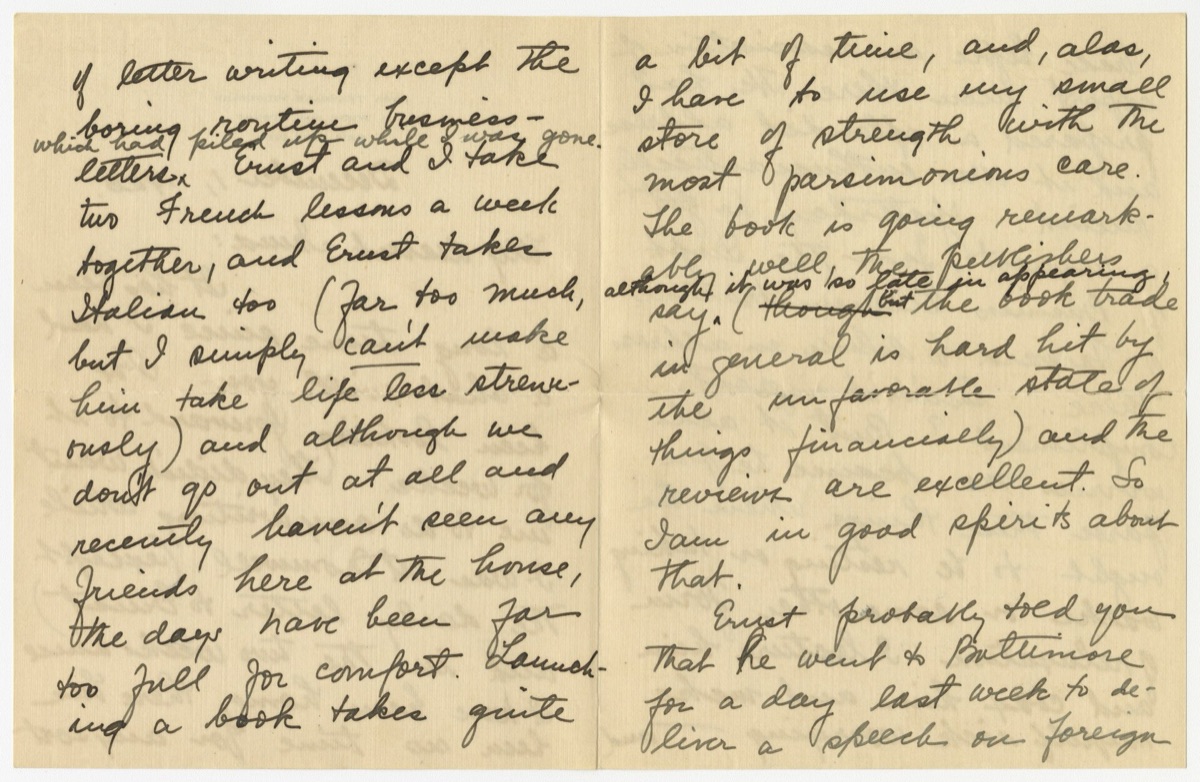 of letter writing except the
boring routine business-
which had piled up while I was gone.
letters. Ernst and I take
two French lessons a week
together, and Ernst takes
Italian too (far too much,
but I simply can't make
him take life less strenu-
ously) and although we
don't go out at all and
recently haven't seen any
friends here at the house,
the days have been far
too full for comfort. Launch-
ing a book takes quite
a bit of time, and, alas,
I have to use my small
store of strength with the
most parsimonious care.
The book is going remark-
ably well, the publishers
although it was so late in appearing,
say. (though but the book trade
in general is hard hit by
the unfavorable state of
things financially) and the
reviews are excellent. So
I am in good spirits about
that.
Ernst probably told you
that he went to Baltimore
for a day last week to de-
liver a speech on foreign